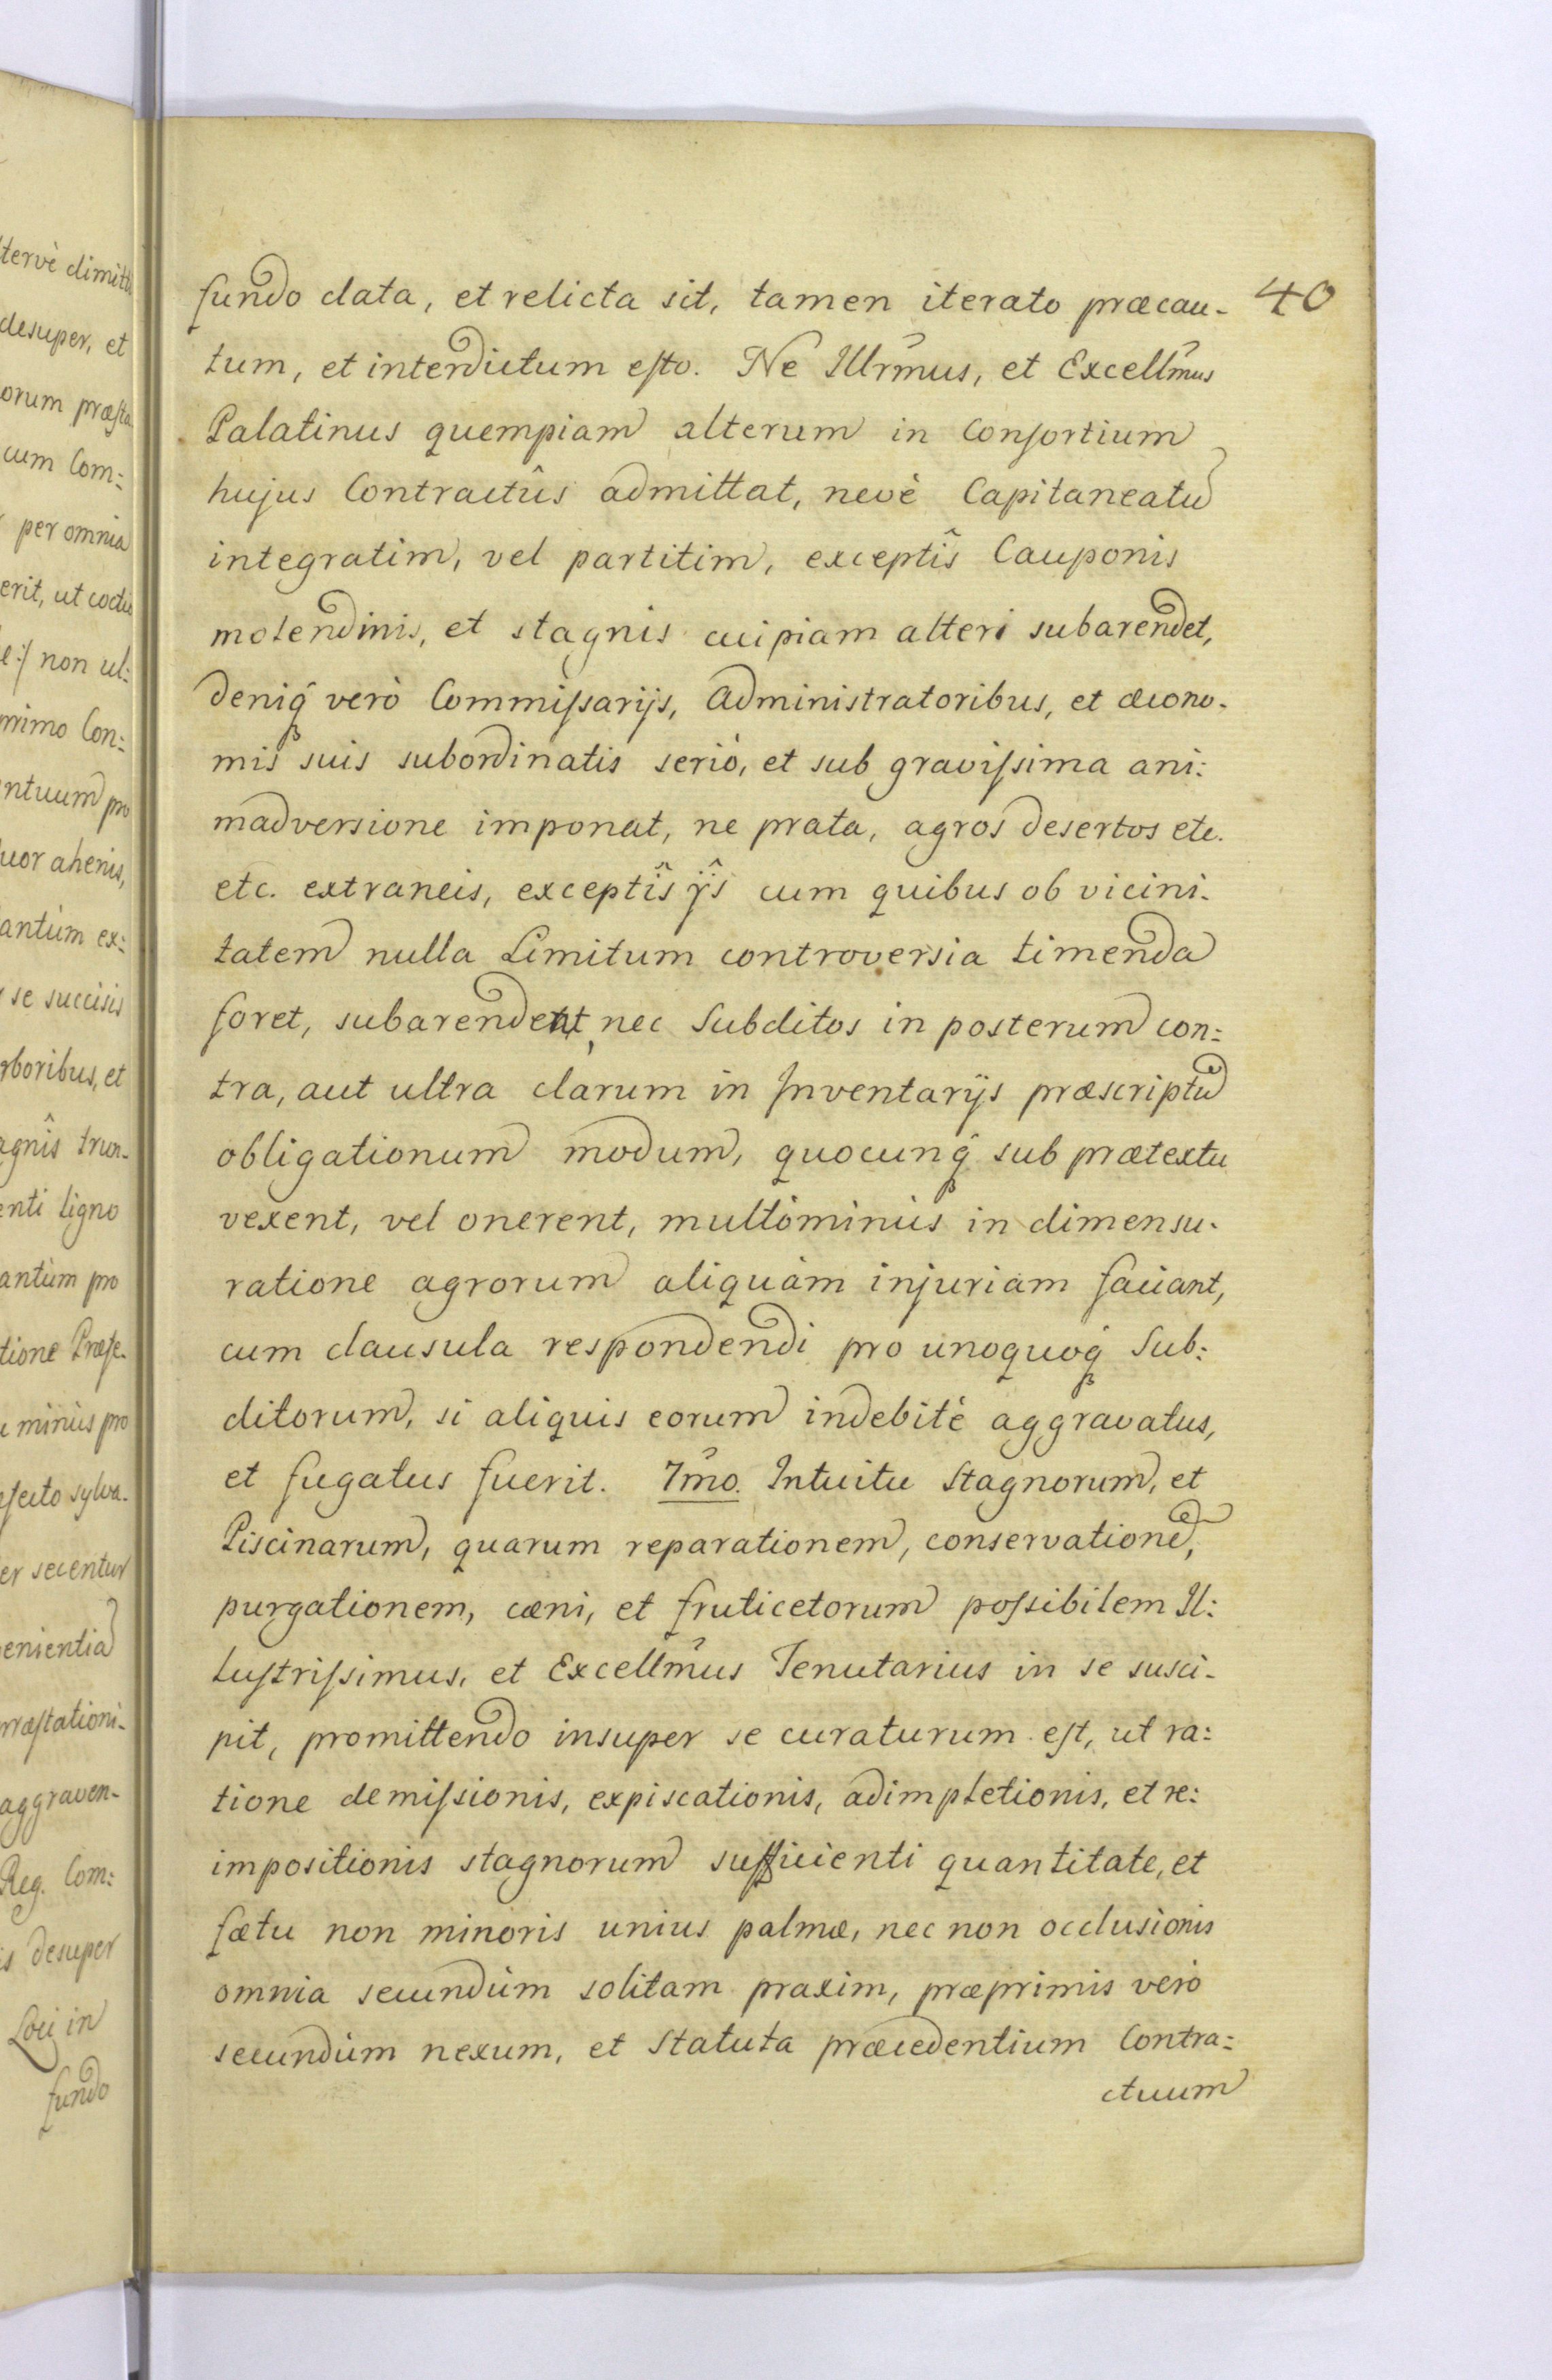 40
fundo data, et relicta sit, tamen iterato præcau-
tum, et interdictum esto. Ne Illrm̃us, et Excellm̃us
Palatinus quempiam alterum in Consortium
hujus Contractûs admittat, nevè Capitaneatũ
integratim, vel partitim, exceptîs Cauponis
molendinis, et stagnis cuipiam alteri subarendet,
deniq̃ verò Commissarijs, Administratoribus, et œcono-
mis suis subordinatis seriò, et sub gravissima ani:
madversione imponat, ne prata, agros desertos etc.
etc. extraneis, exceptîs ijs cum quibus ob vicini-
tatem nulla Limitum controversia timenda
foret, subarendent, nec Subditos in posterum con:
tra, aut ultra clarum in Inventarijs præscriptũ
obligationum modum, quocunq̃ sub prætextu
vexent, vel onerent, multòminùs in dimensu-
ratione agrorum aliquàm injuriam faciant,
cum clausula respondendi pro unoquoq̃ Sub:
ditorum, si aliquis eorum indebitè aggravatus,
et fugatus fuerit. 7mõ. Intuitu Stagnorum, et
Piscinarum, quarum reparationem, conservationẽ,
purgationem, cœni, et fruticetorum possibilem Il:
lustrissimus, et Excellm̃us Tenutarius in se susci-
pit, promittendo insuper se curaturum est, ut ra:
tione demissionis, expiscationis, adimpletionis, et re:
impositionis stagnorum sufficienti quantitate, et
fætu non minoris unius palmæ, nec non occlusionis
omnia secundùm solitam praxim, præprimis verò
secundùm nexum, et Statuta præcedentium Contra:
ctuum
tervè dimitt
desuper, et
orum præsta
cum Com:
per omnia
erit, ut coctu
e:/ non ul:
nimo Con:
ntuum pro
uor ahenis,
antùm ex:
se succisis
rboribus, et
agnîs trun-
enti ligno
antùm pro
tione Præfe-
minùs pro
efecto sylva-
er secentur
enientia
ræstationi-
aggraven-
Reg. Com:
is desuper
Loci in
fundo